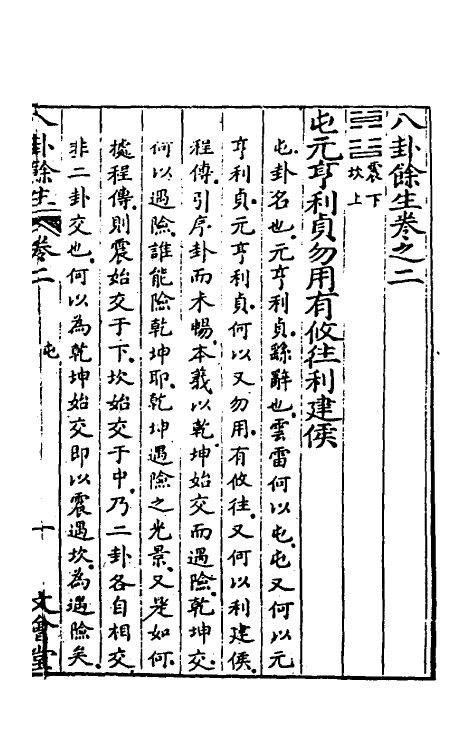 八卦餘生卷之二
震下
坎上
屯元亨利貞勿用有攸往利建侯
屯卦名也元亨利貞繇辭也雲雷何以屯屯又何以元
亨利貞元亨利貞何以又勿用有攸往又何以利建侯
程傳引序卦而未暢本義以乾坤始交而遇險乾坤交
何以遇險誰能險乾坤耶乾坤遇險之光景又是如何
據程傳則震始交于下坎始交于中乃二卦各自相交
非二卦交也何以為乾坤始交即以震遇坎為遇險矣
八卦餘生 卷二
屯
十
文會堂